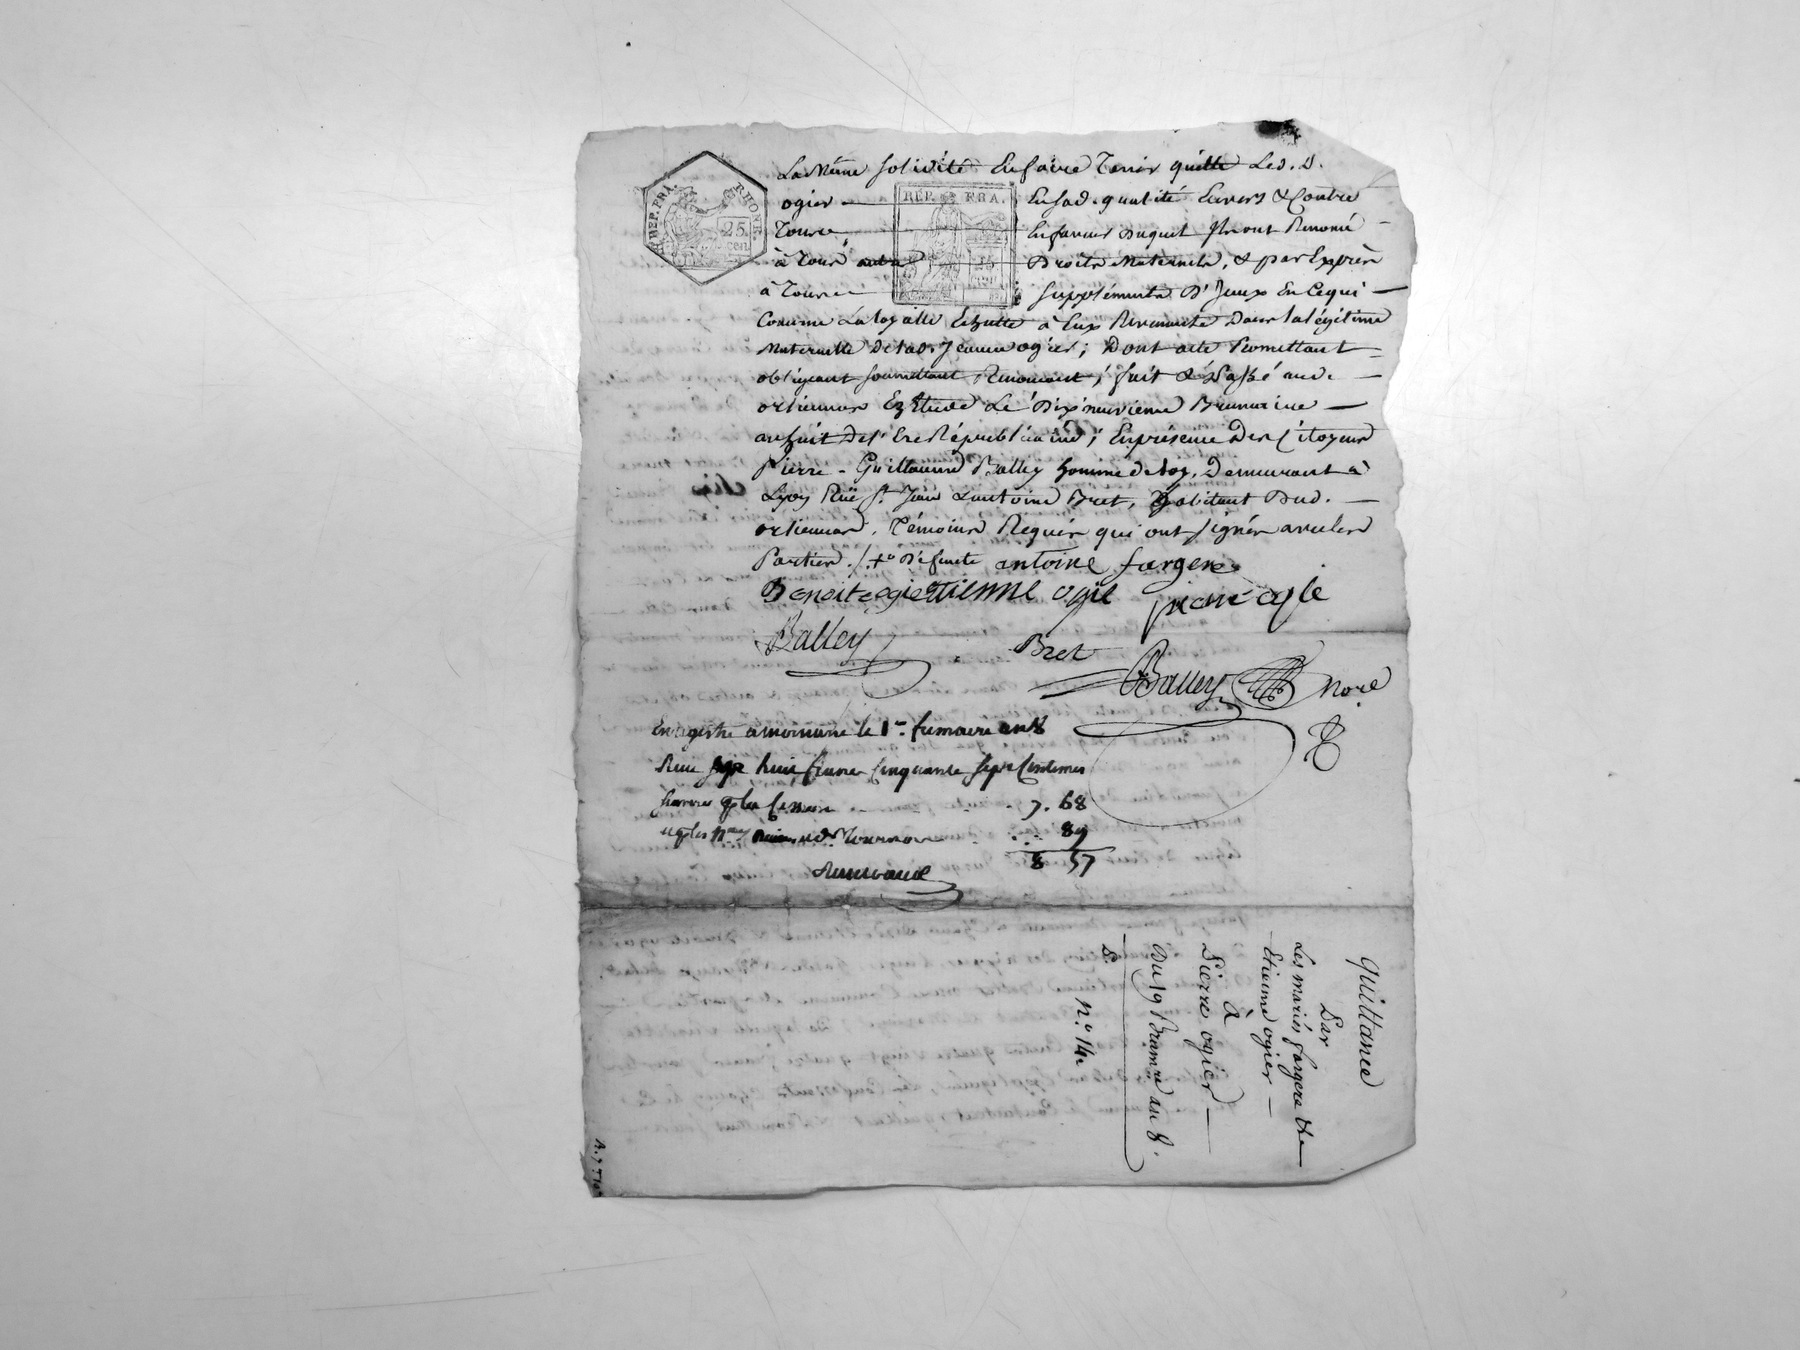 REP. FRA. RHONE. 25 cen.
REP. FRA.
La même solidité En faire Tenir quitte Led. S.
ogier Ensad. qualité Envers & Contre
Tous, En faveur Duquel Ils ont Renoncé
à Tous Droits Maternels, & par Exprès
à Tous Suppléments D'Iceux En Cequi
Concerne La loyalle Echutte à Eux Revenante Dans la légitime
Maternelle De lad. Jeanne ogier; Dont acte Promettant
obligeant Soumettant Renonçant; fait & Passé aud.
orlienas Ez Etude Le Dix neuvieme Brumaire
an huit De l'Ere Républicaine; En présence Des Citoyens
Pierre-Guillaume Balley homme de loy, Demeurant à
Lyon Rüe St. Jean & antoine Bret, habitant Dud.
orlienas, Témoins Requis qui ont Signés avec les
Parties ./.+ Défunte antoine fargere
Benoite ogie etienne ogie piere ogie
Balley Bret
Balley Nore
Enregistré a mornant le 1er frimaire an 8
Reçu huit francs Cinquante Sept Centimes
7. 68
89
8 57
quittance
Par
Les mariés fargere &
Etienne ogier
à
Pierre ogier
Du 19 Brumre. an 8.
n.° 14.